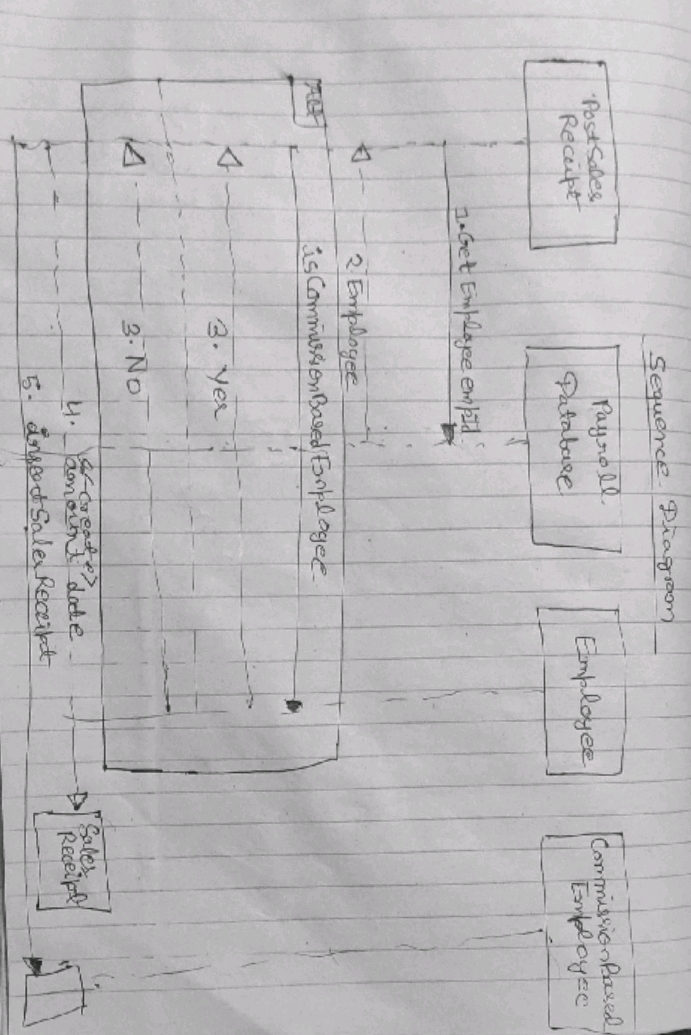 Sequence Diagram
PostSales
Receipt
Payroll
Database
Employee
CommissionBased
Employee
1. Get Employee empId
2 Employee
Alt
isCommissionBasedEmployee
3. Yes
3. No
4. <<create>>
amount date
Sales
Receipt
5. insertSalesReceipt